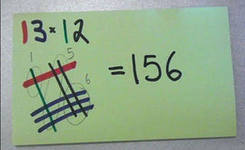 13 × 12
1 5
6
= 156